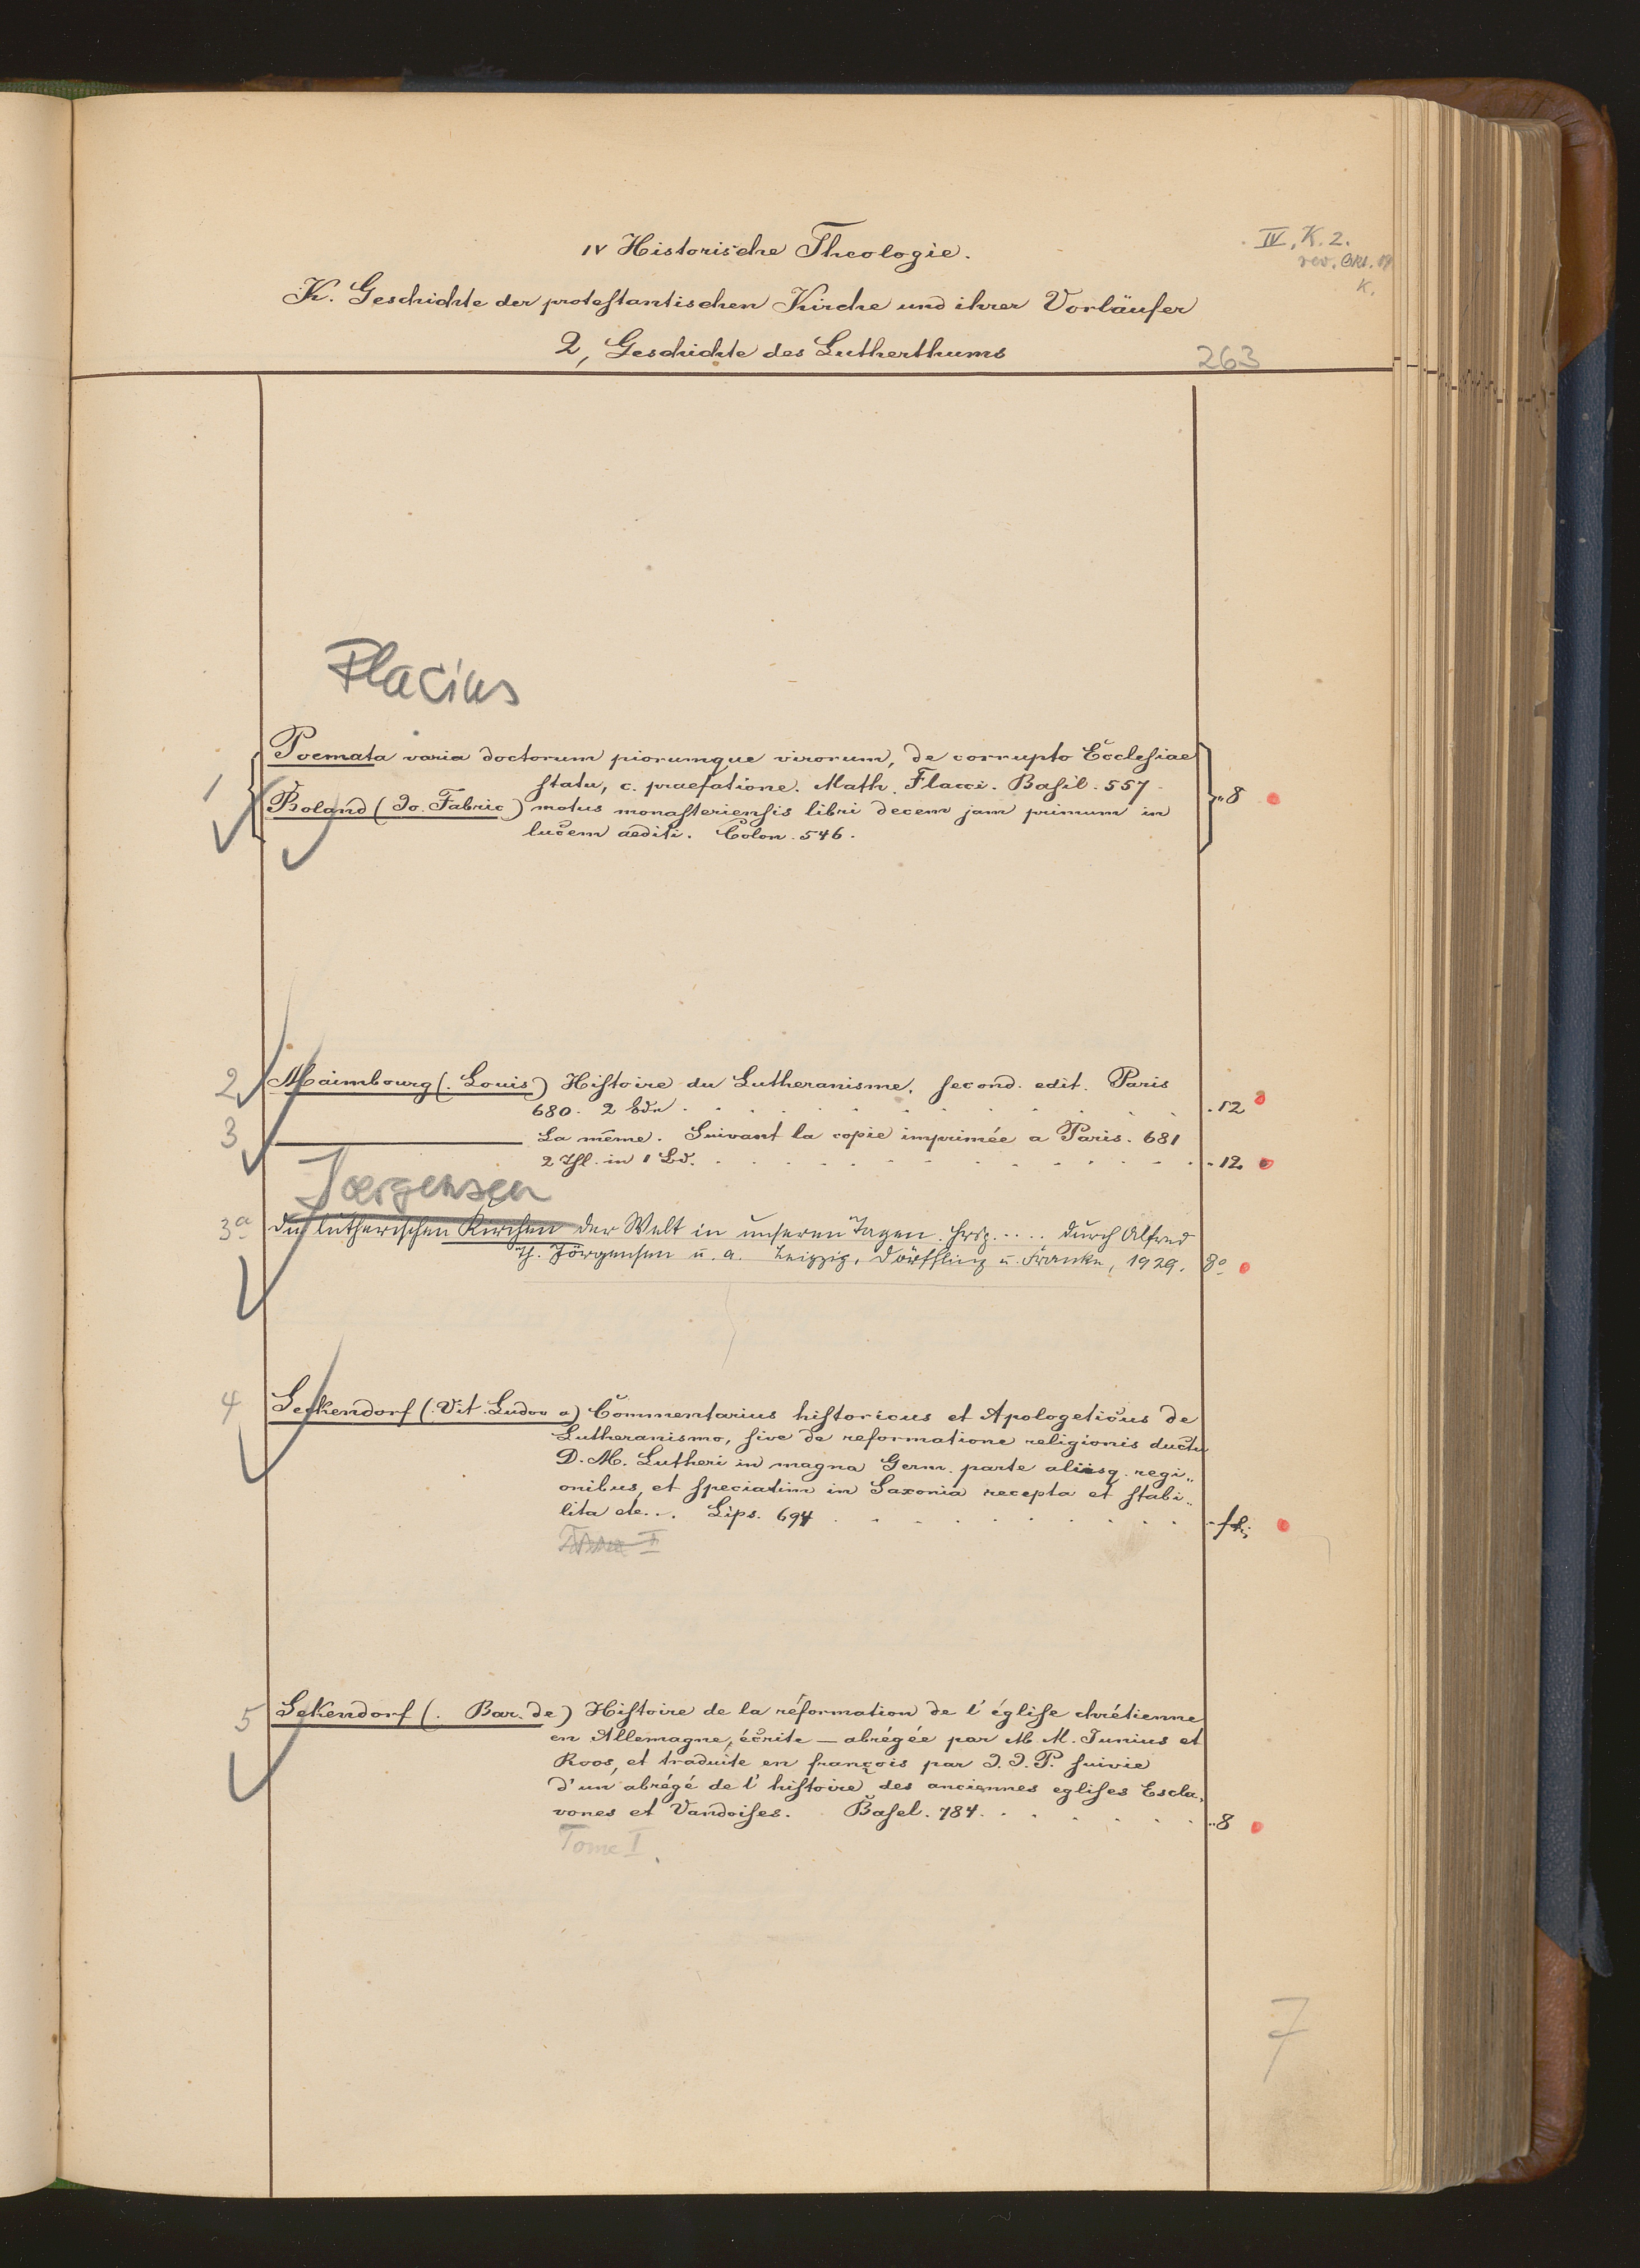 IV Historische Theologie.
IV, K. 2.
rev. Okt.
K.
K. Geschichte der protestantischen Kirche und ihrer Vorläufer
2, Geschichte des Lutherthums
263
Flacius
1 Poemata varia doctorum piorumque virorum, de corrupto Ecclesiae
statu, c. praefatione. Math. Flacci. Basil. 557.
Boland (Jo. Fabric) motus monasteriensis libri decem jam primum in
lucem aediti. Colon. 546.
8
2 Maimbourg (. Louis) Histoire du Lutheranisme. second. edit. Paris
680. 2 Bde . . . 12
3 ——— La même. Suivant la copie imprimée a Paris. 681
2 Thl. in 1 Bd. . . . 12
Joergensen
3a Die lutherischen Kirchen der Welt in unseren Tagen. Hrsg. .... durch Alfred
Th. Jörgensen u. a. Leipzig, Dörffling u. Franke, 1929. 8°
4 Seckendorf (. Vit. Ludov a) Commentarius historicus et Apologeticus de
Lutheranismo, sive de reformatione religionis ductu
D. M. Lutheri in magna Germ. parte aliisq. regi„
onibus, et speciatim in Saxonia recepta et stabi„
lita etc... Lips. 694 . . .
5 Sekendorf (. Bar. de) Histoire de la réformation de l'églisе chrétienne
en Allemagne, écrite — abrégée par M. M. Junius et
Roos, et traduite en françois par J. J. P. suivie
d'un abrégé de l'histoire des anciennes eglises Escla„
vones et Vandoises. Basel. 784. . . . 8
Tome I.
7